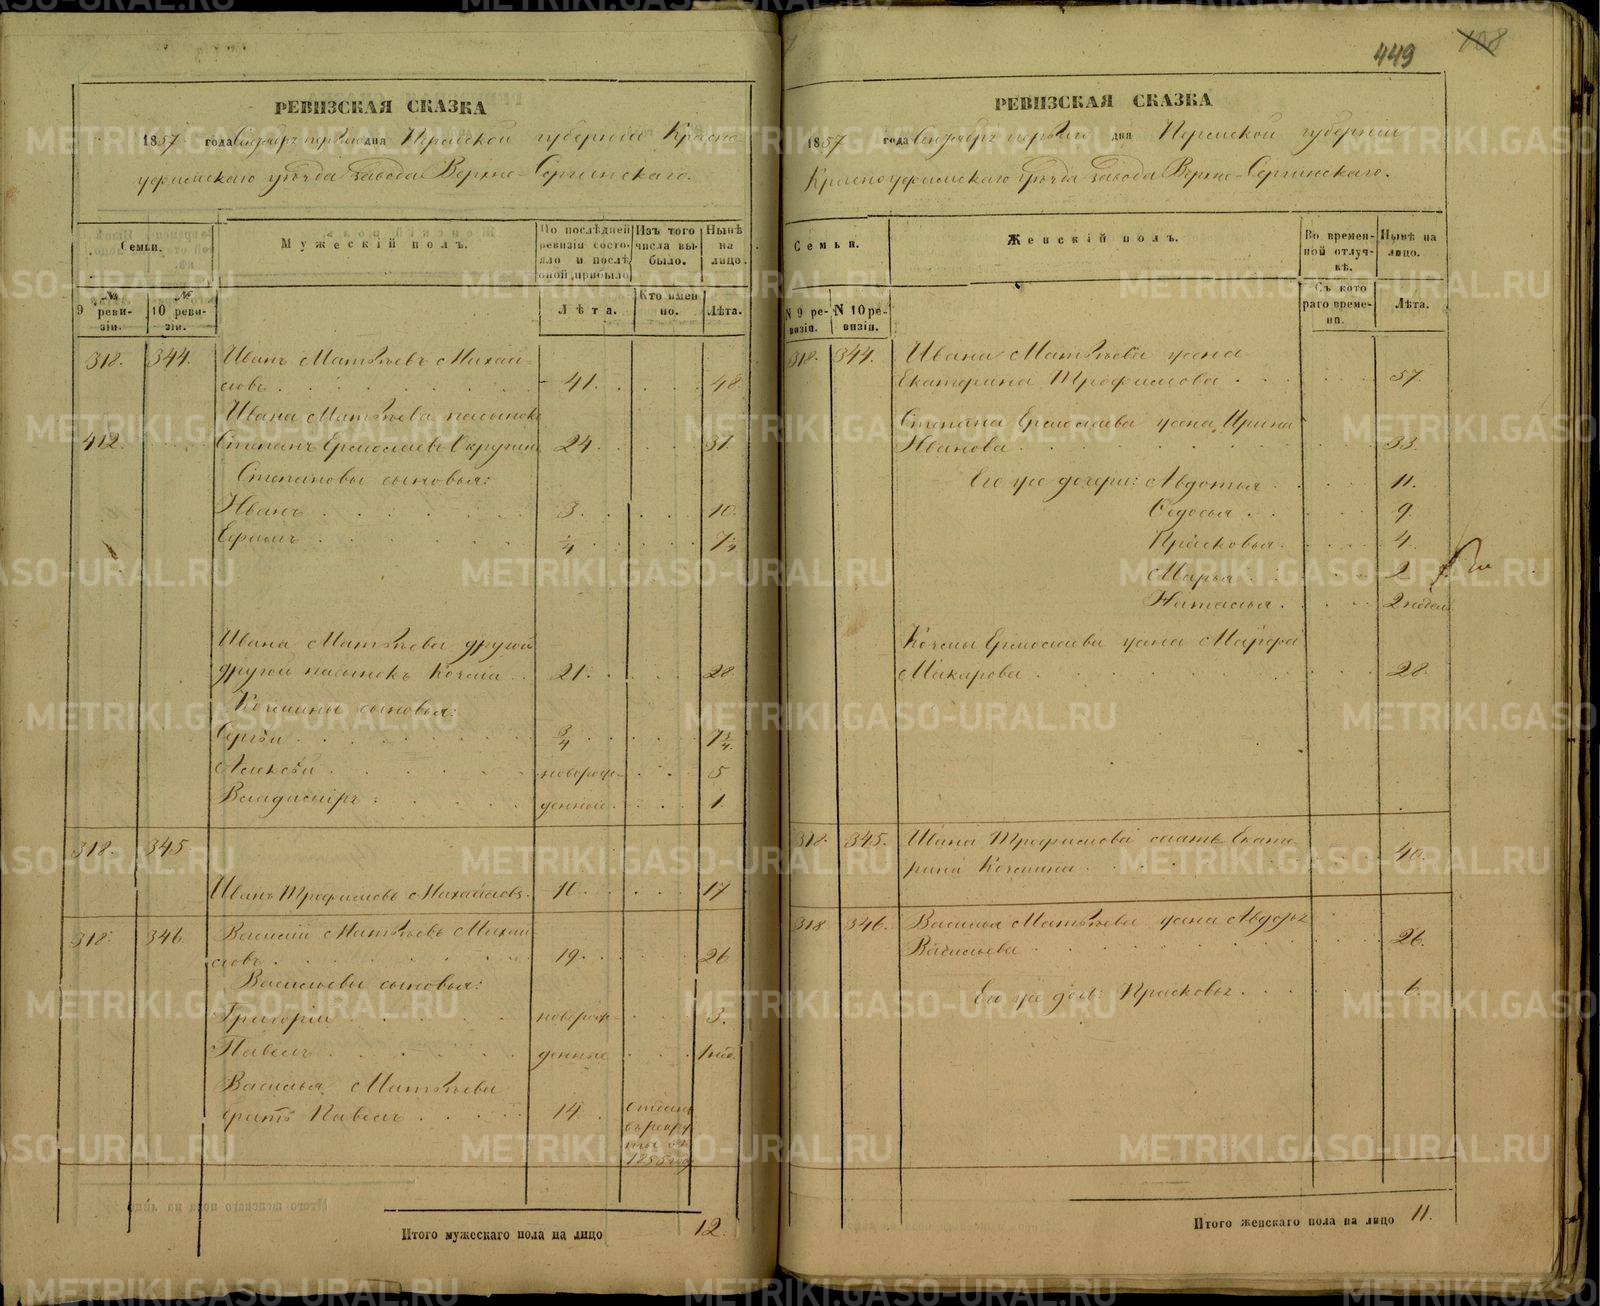 РЕВИЗСКАЯ СКАЗКА
1857 года Сентября первого дня Пермской губернии Красно-
уфимскаго уѣзда завода Верхне-Сергинскаго.
Семьи.
Мужескій полъ.
По послѣдней ревизіи состояло и послѣ оной прибыло
Изъ того числа выбыло.
Нынѣ на лицо.
№ 9 ревизіи.
№ 10 ревизіи.
Лѣта.
Кто именно.
Лѣта.
318. 344. Иванъ Матвѣевъ Михай-
ловъ 41. 48
Ивана Матвѣева пасынокъ
412. Степанъ Ермолаевъ 24. 31.
Степановы сыновья:
Иванъ 3. 10.
Ефимъ 1/4 7 1/4
Ивана Матвѣева другой
другой пасынокъ Козьма 21. 28
Козьмины сыновья:
Сергѣй 3/4 7 3/4
Алексѣй новорож- 5
Владимiръ денные 1
318. 345
Иванъ Трофимовъ Михайловъ 10. 17
318. 346. Василій Матвѣевъ Михай-
ловъ 19. 26
Васильевы сыновья:
Григорій новорож- 3.
Павелъ денные 1 нед.
Василья Матвѣева
братъ Павелъ 14. отданъ
въ рекру
ты въ
1855 году
Итого мужескаго пола на лицо 12.
449
108
РЕВИЗСКАЯ СКАЗКА
1857 года Сентября перваго дня Пермской губернии
Красноуфимскаго уѣзда завода Верхне-Сергинскаго.
Семьи.
Женскій полъ.
Во временной отлучкѣ.
Нынѣ на лицо.
N 9 ревизіи.
N 10 ревизіи.
Съ котораго времени.
Лѣта.
318. 344. Ивана Матвѣева жена
Екатерина Трофимова 57.
Степана Ермолаева жена Ирина
Иванова 33.
Его же дочери: Авдотья 11.
Федосья 9
Прасковья 4.
Марья 2
Наталья 2 недели
Козьмы Ермолаева жена Марфа
Макарова 28.
318. 345. Ивана Трофимова мать Екате-
рина Козмина 40.
318 346. Василья Матвѣева жена Авдотья
Васильева 26.
Его же дочь Прасковья 6.
Итого женскаго пола на лицо 11.
METRIKI.GASO-URAL.RU